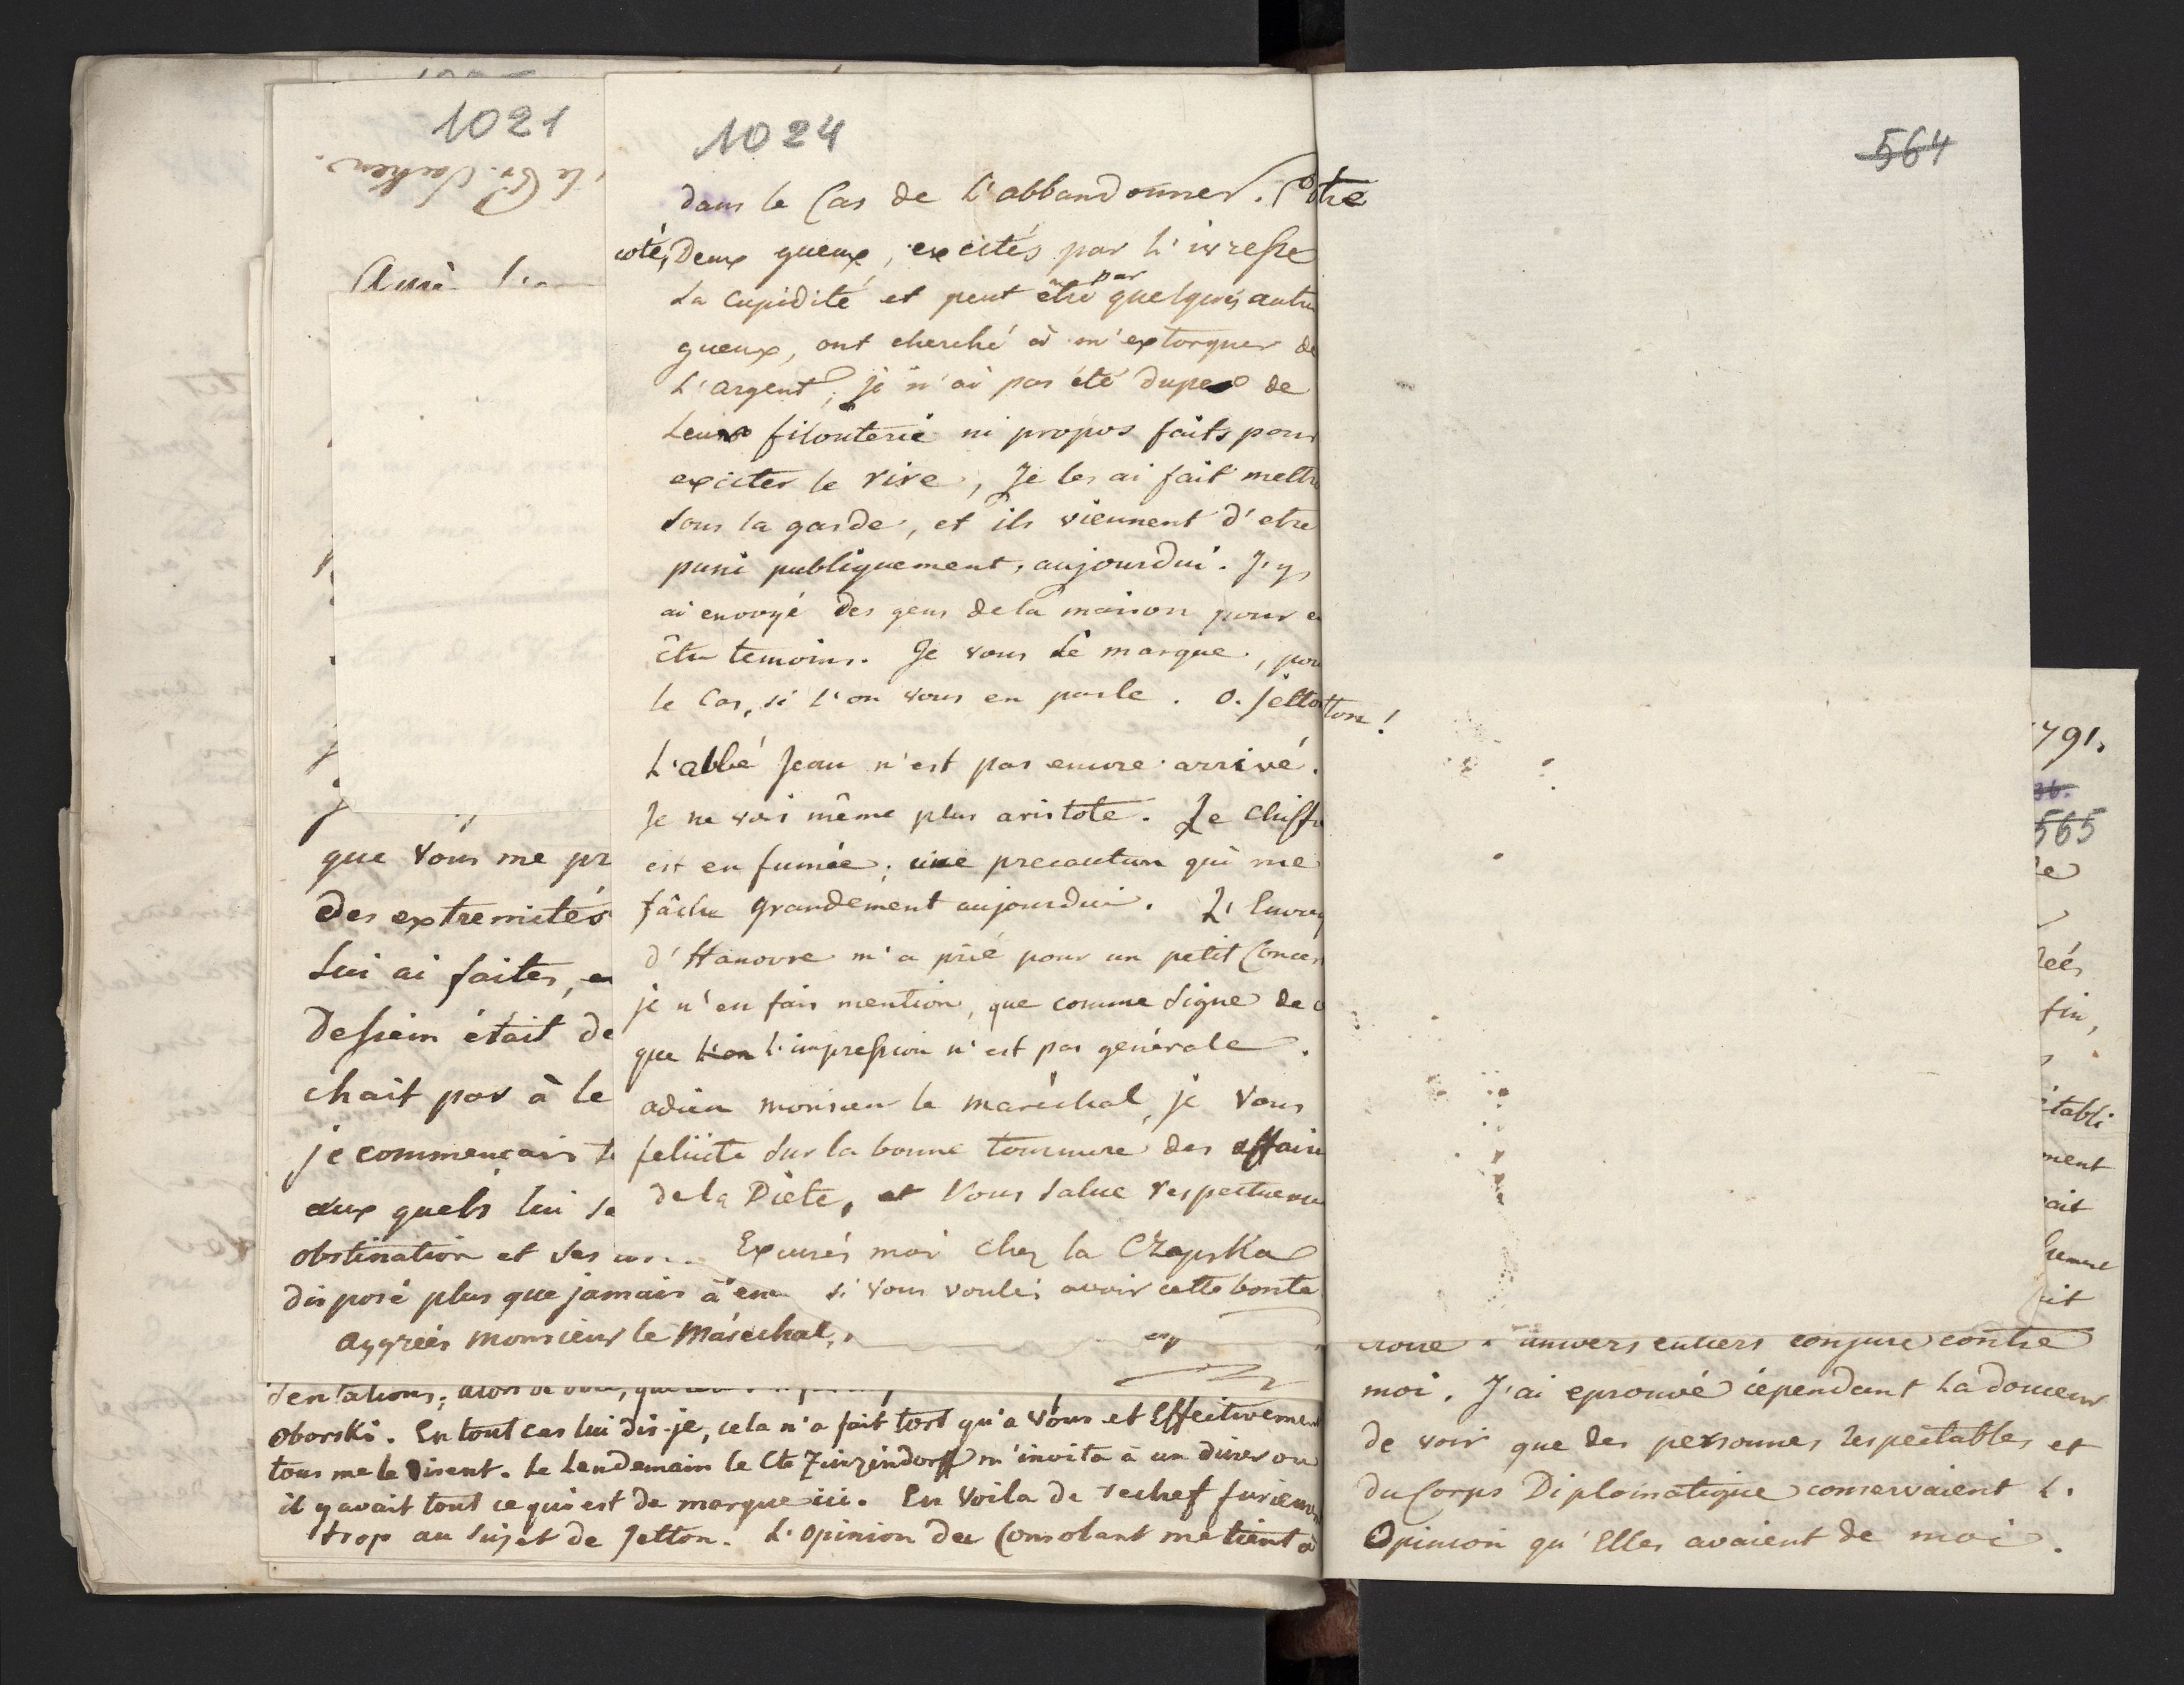 1021
1024
dans le Cas de L'abbandonner.
coté, Deux gueux, excités par L'ivresse
par
La Cupidité et peut être quelques autre
gueux, ont cherché à m'extorquer de
L'argent, je n'ai pas été dupe de
Leur filouterie ni propos faits pour
exciter le rire, Je les ai fait mettre
sous la garde, et ils viennent d'etre
puni publiquement, aujourdui. J'y
ai envoyé des gens de la maison pour e
être temoins. Je vous le marque, pou
le Cas, si l'on vous en parle. O. Jetton!
L'abbé Jean n'est pas encore arrivé.
Je ne vois même plus aristote. Le Chiffre
est en fumée; une precaution qui me
fâche grandement aujourdui. L'Envoy
d'Hanovre m'a prié pour un petit Concer
je n'en fais mention, que comme signe de c
que L'on l'impression n'est pas générale.
adieu monsieur le maréchal, je Vous
felicite sur la bonne tournure des affaire
de la Diète, et Vous salue respectueuse
Excusés moi chez la Czapska
si vous voulés avoir cette bonté
que Vous me pr
des extremités
Lui ai faites, e
Dessein était de
chait pas à le
je commençais
aux quels lui se
obstination et ses
disposé plus que jamais à
aggrées monsieur le Maréchal,
Oborski. En tout cas lui dis-je, cela n'a fait tort qu'a Vous et Effectivemen
tous me le disent. Le Lendemain le Cte Zinzindorff m'invita à un diner ou
il y avait tout ce qui est de marque ici. En Voila de rechef furieuse
trop au Sujet de Jetton. L'opinion du Consolant me tient
564
791.
565
fin,
établi
ment
ait
it
univers entiers conjuré contre
moi. J'ai eprouvé cependant La douceur
de voir que des personnes respectables et
du Corps Diplomatique conservaient L.
Opinion qu'Elles avaient de moi.